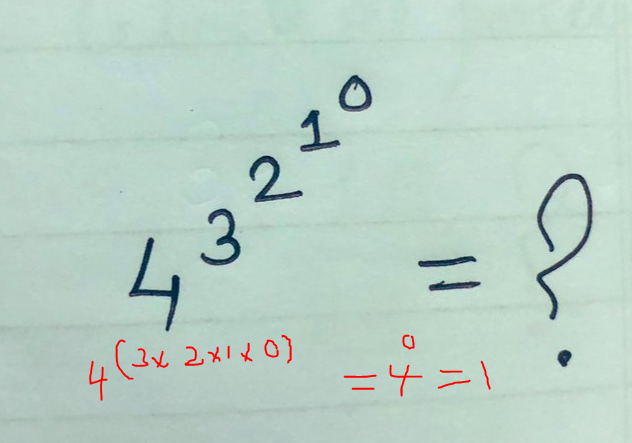 4^3^2^1^0 = ?
4^(3x 2x1x 0) = 4^0 = 1